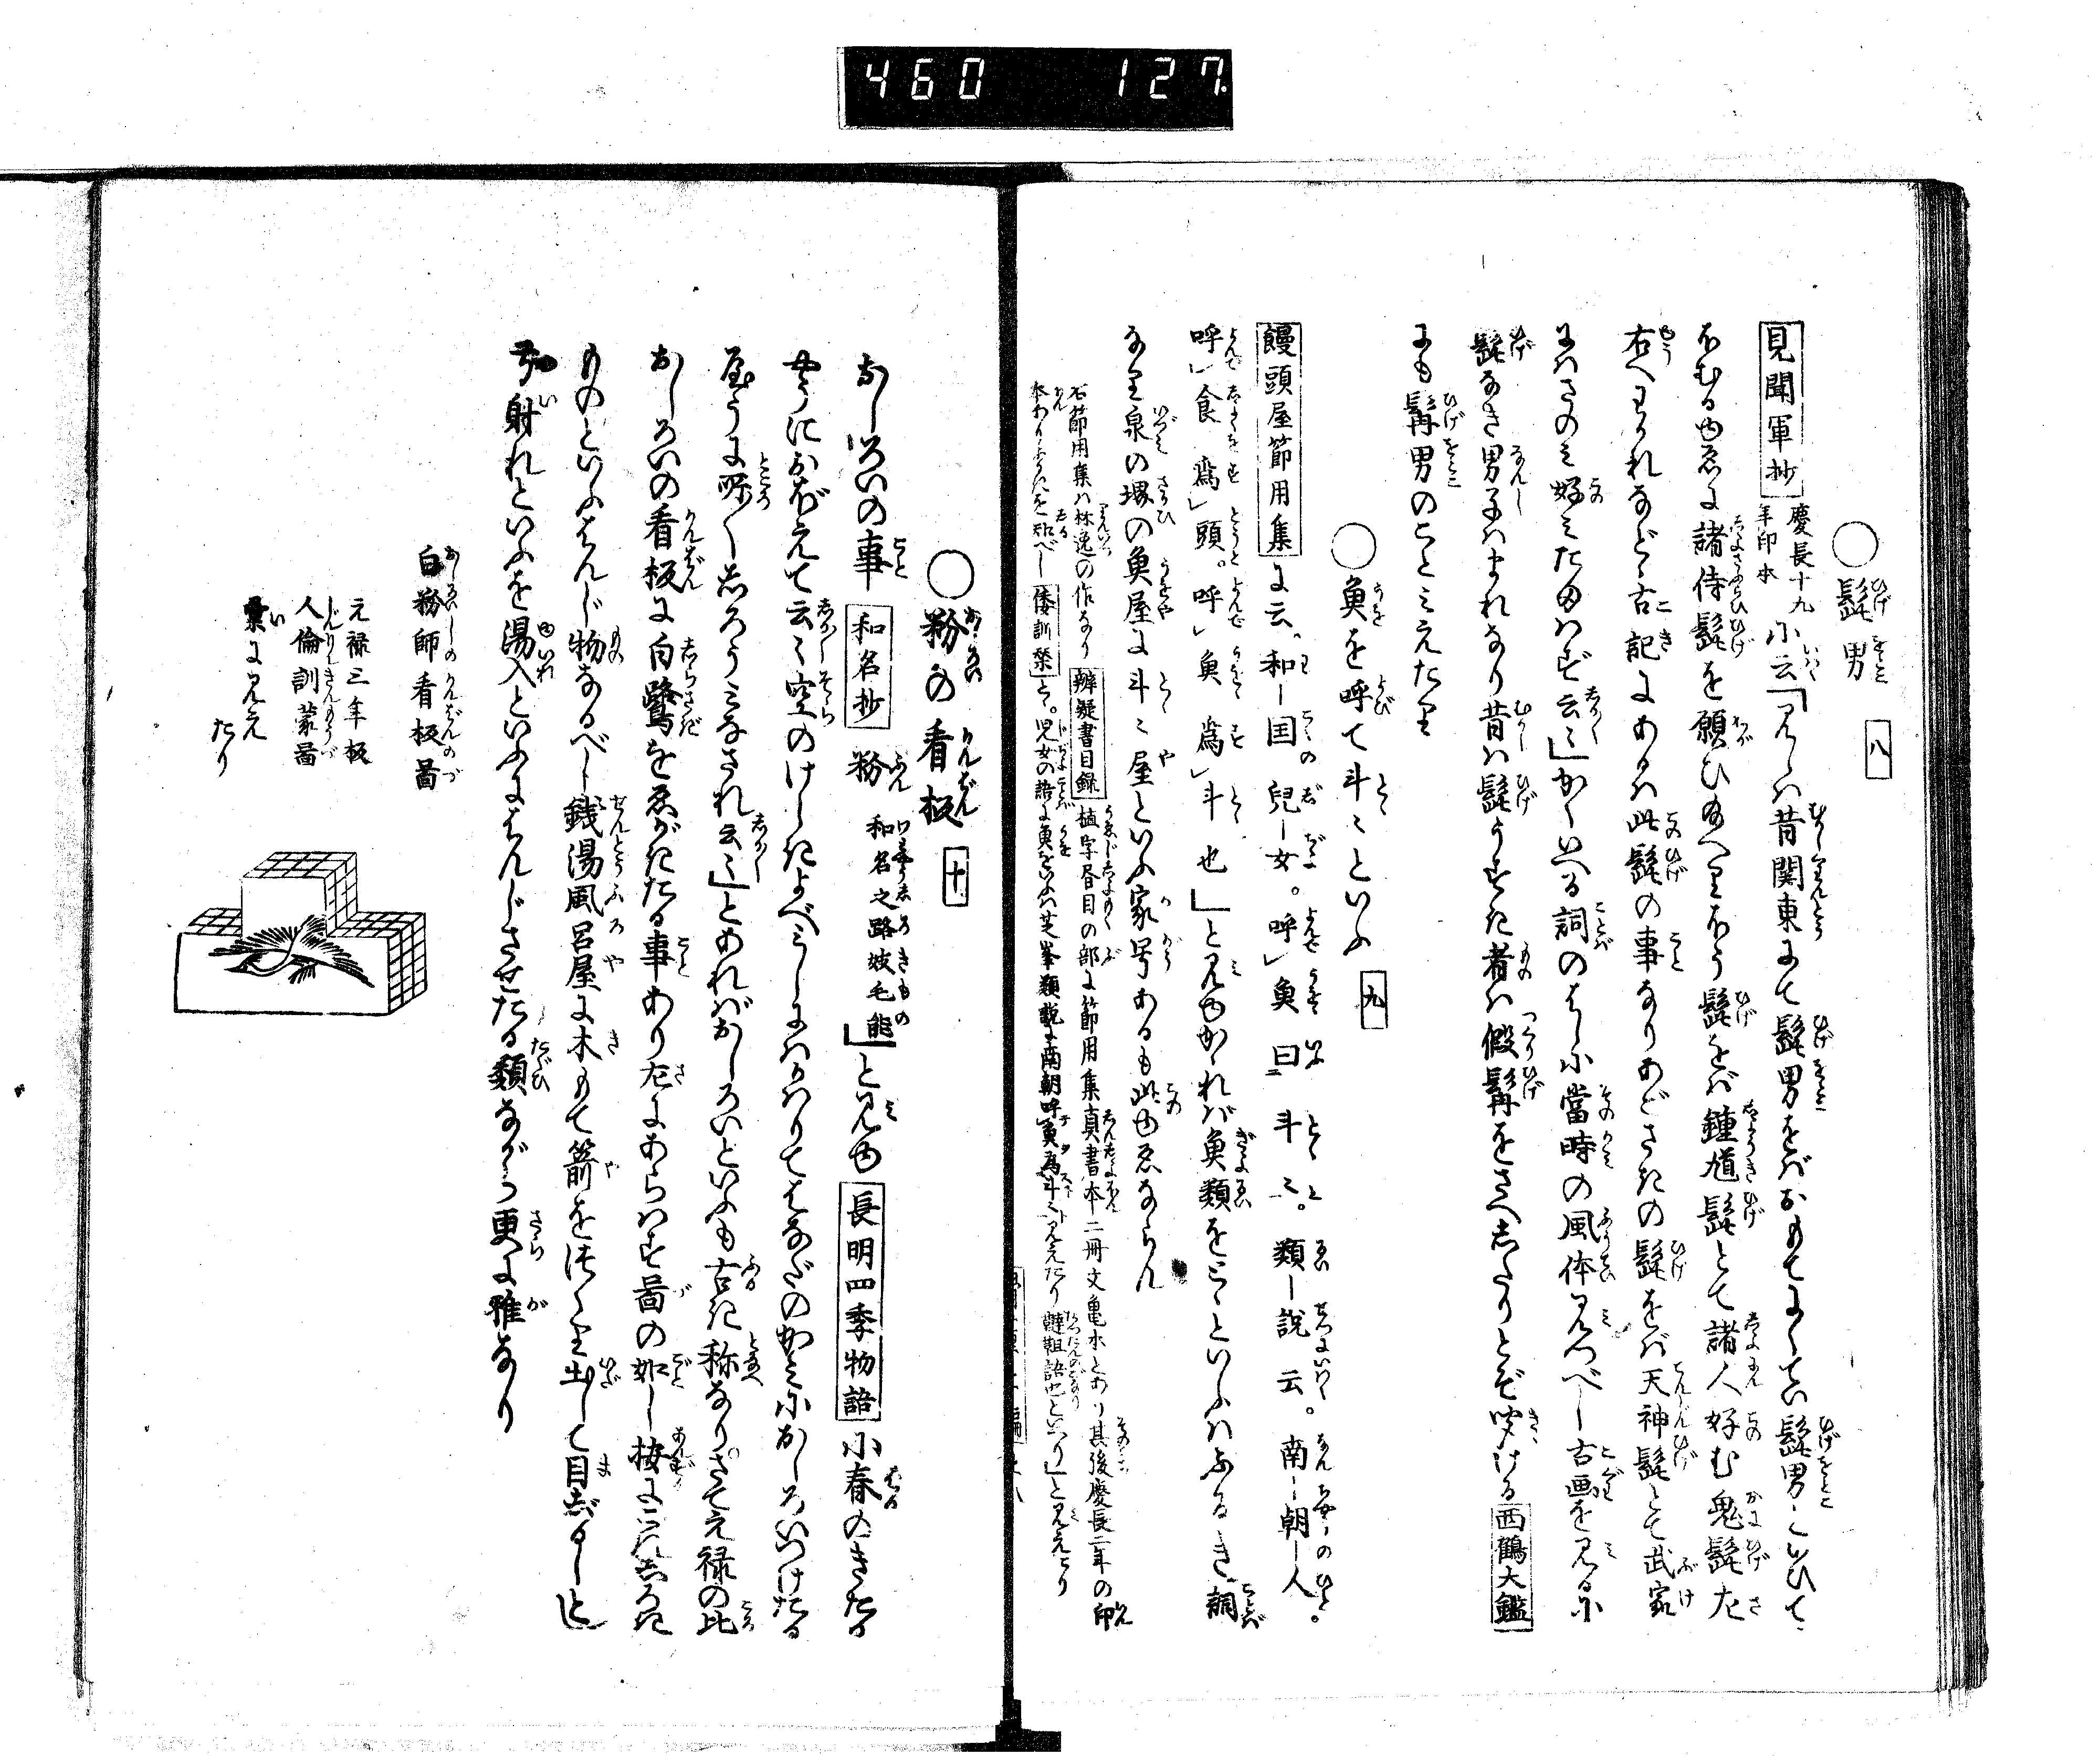 460 127.
○髭男 八
見聞軍抄 慶長十九年印本 に云「見しハ昔関東にて髭男をばおもてよくてい髭男といひて
ほむるゆゑに諸侍髭を願ひ給へりほう髭をば鍾馗髭とて諸人好む鬼髭左
右へわかれなどゝ古記にあるハ此髭の事なりあどさきの髭をば天神髭とて武家
にハさのミ好ミたまハず云々」かくいへる詞のはしに當時の風体見つべし古画を見るに
髭なき男子ハまれなり昔ハ髭うすき者ハ假髯をさへしたりとぞ聞ける 西鶴大鑑
にも髯男のことミえたり
○魚を呼て斗々といふ 九
饅頭屋節用集 に云。和国児女。呼魚曰斗々。類説云。南朝人。
呼食為頭。呼魚為斗也」と見ゆかゝれバ魚類をとゝといふハふるき詞
なり泉の堺の魚屋に斗々屋といふ家号あるも此ゆゑならん
右節用集ハ林逸の作なり 辨疑書目録 植字書目の部に節用集真書本二冊文亀本とあり其後慶長二年の印
本あり 倭訓栞 に。児女の語に魚をいふハ芝峯類説に南朝呼魚為斗と見えたり 詁也といへり」と見えたり
○粉の看板 十
おしろいの事 和名抄 粉 和名之路岐毛能」と見ゆ 長明四季物語 に春のきたる
やうにおぼえて云々空のけしきよべミしにハかはりてはなだのかミにおしろいつけたる
やうに所々しろうミなされ云々」とあれバおしろいといふも古き称なりさて元禄の比
おしろいの看板に白鷺をゑがきたる事あり左にあらハす啚の如し按にこれしろき
ものといふはんじ物なるべし銭湯風呂屋に木もて箭をつくり出して目じるしとし
弓射れといふを湯入といふにはんじさせたる類ながら更に雅なり
白粉師看板之啚
元禄三年板
人倫訓蒙啚
彙に見え
たり